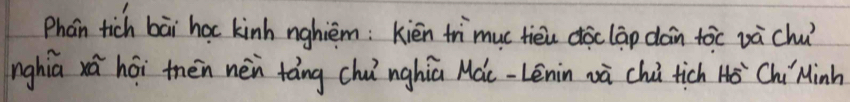 Phân tích bài học kinh nghiệm : Kiên trì mục tiêu độc lập dân tộc và chủ
nghĩa xã hội trên nền tảng chủ nghĩa Mác - Lênin và chủ tịch Hồ Chí Minh